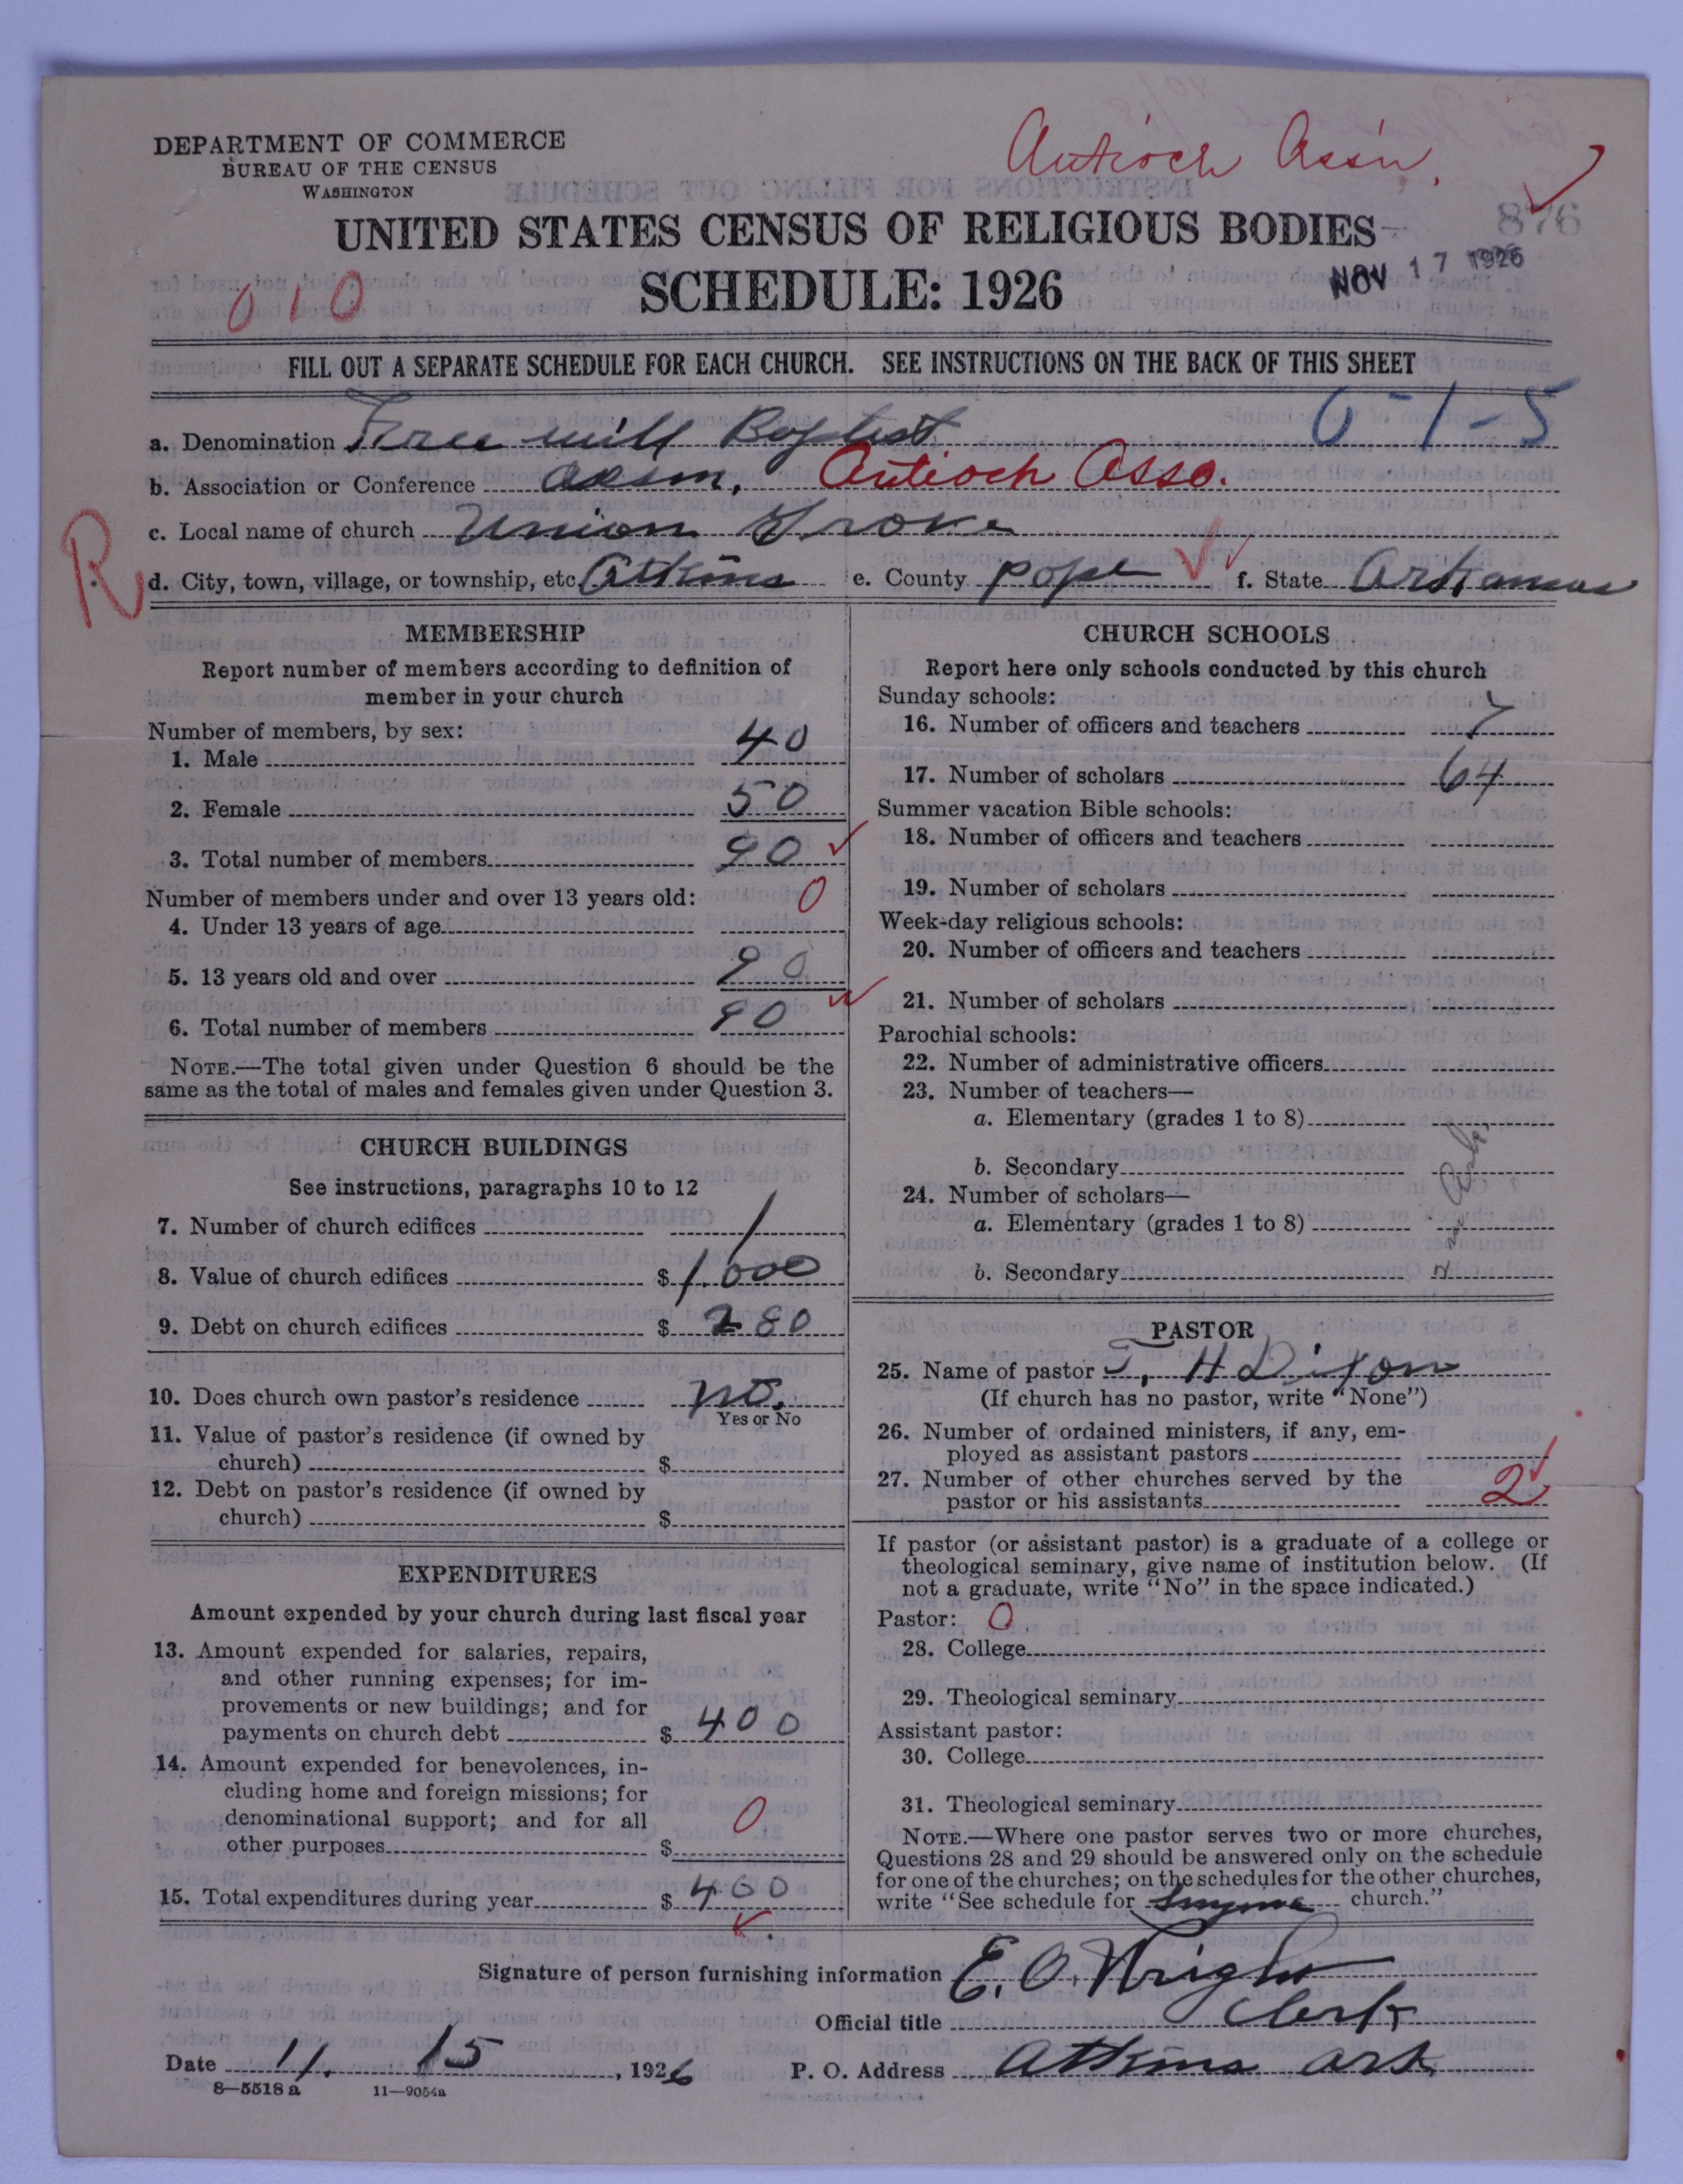 DEPARTMENT OF COMMERCE
BUREAU OF THE CENSUS
WASHINGTON
Antioch Ass'n.
UNITED STATES CENSUS OF RELIGIOUS BODIES
876
SCHEDULE: 1926
NOV 17 1926
010
FILL OUT A SEPARATE SCHEDULE FOR EACH CHURCH. SEE INSTRUCTIONS ON THE BACK OF THIS SHEET
0-1-5
a. Denomination Free will Baptist
b. Association or Conference Assn, Antioch Asso.
c. Local name of church Union Grove
R
d. City, town, village, or township, etc. Atkins e. County pope f. State Arkansas
MEMBERSHIP
Report number of members according to definition of
member in your church
Number of members, by sex:
1. Male 40
2. Female 50
3. Total number of members 90
Number of members under and over 13 years old:
4. Under 13 years of age 0
5. 13 years old and over 90
6. Total number of members 90
NOTE.—The total given under Question 6 should be the
same as the total of males and females given under Question 3.
CHURCH BUILDINGS
See instructions, paragraphs 10 to 12
7. Number of church edifices 1
8. Value of church edifices $ 1,000
9. Debt on church edifices $ 280
10. Does church own pastor's residence no.
Yes or No
11. Value of pastor's residence (if owned by
church) $
12. Debt on pastor's residence (if owned by
church) $
EXPENDITURES
Amount expended by your church during last fiscal year
13. Amount expended for salaries, repairs,
and other running expenses; for im-
provements or new buildings; and for
payments on church debt $ 400
14. Amount expended for benevolences, in-
cluding home and foreign missions; for
denominational support; and for all
other purposes $ 0
15. Total expenditures during year $ 400
CHURCH SCHOOLS
Report here only schools conducted by this church
Sunday schools:
16. Number of officers and teachers 7
17. Number of scholars 64
Summer vacation Bible schools:
18. Number of officers and teachers
19. Number of scholars
Week-day religious schools:
20. Number of officers and teachers
21. Number of scholars
Parochial schools:
22. Number of administrative officers
23. Number of teachers—
a. Elementary (grades 1 to 8)
b. Secondary
24. Number of scholars—
a. Elementary (grades 1 to 8)
b. Secondary
PASTOR
25. Name of pastor T. H Dixon
(If church has no pastor, write "None")
26. Number of ordained ministers, if any, em-
ployed as assistant pastors
27. Number of other churches served by the
pastor or his assistants 2
If pastor (or assistant pastor) is a graduate of a college or
theological seminary, give name of institution below. (If
not a graduate, write "No" in the space indicated.)
Pastor: 0
28. College
29. Theological seminary
Assistant pastor:
30. College
31. Theological seminary
NOTE.—Where one pastor serves two or more churches,
Questions 28 and 29 should be answered only on the schedule
for one of the churches; on the schedules for the other churches,
write "See schedule for Smyrna church."
Signature of person furnishing information E. O. Wright
Official title Clerk
Date 11. 15, 1926 P. O. Address Atkins Ark.
8—5518 a 11—9054a